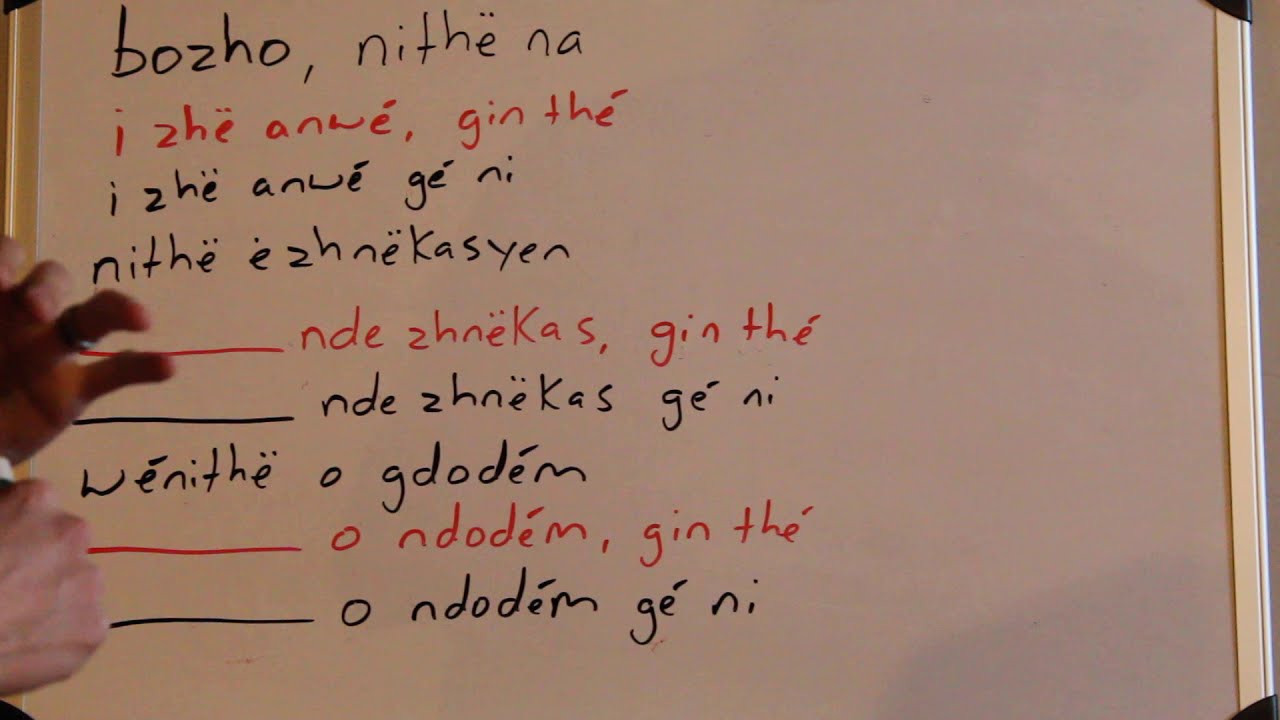 bozho, nithë na
i zhë anwé, gin thé
i zhë anwé gé ni
nithë ėzhnëkasyen
______ nde zhnëkas, gin thé
______ nde zhnëkas gé ni
wénithë o gdodém
______ o ndodém, gin thé
______ o ndodém gé ni